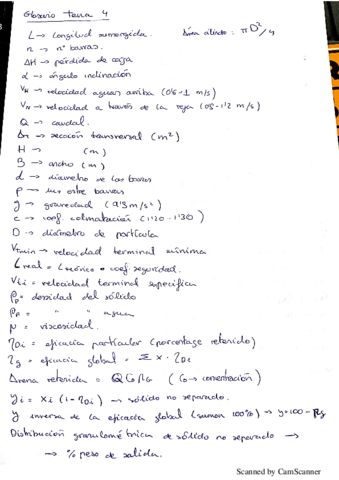 Glosario tema 4
L → longitud sumergida.
Área cilindro: πD²/4
n → nº barras.
ΔH → pérdida de carga
α → ángulo inclinación
→ velocidad aguas arriba (0'6-1 m/s)
→ velocidad a través de la reja (0'8-1'2 m/s)
Q → caudal.
→ sección transversal (m²)
H → (m)
B → ancho (m)
d → diámetro de las barras
p → luz entre barras
g → gravedad (9'8 m/s²)
c → coef. colmatación (1'20-1'30)
D → diámetro de partícula
Vtmin → velocidad terminal mínima
L real = L teórico * coef. seguridad.
Vti = velocidad terminal específica
ρp = densidad del sólido
ρa = " " agua
μ = viscosidad.
ηDi = eficacia particular (porcentage retenido)
ηg = eficacia global = Σ x · ηDi
Arena retenida = Q C0 ηg (C0 → concentración)
yi = xi (1 - ηDi) → sólido no separado.
y inversa de la eficacia global (suman 100%) → y=100-ηg
Distribución granulométrica de sólido no separado →
→ % peso de salida.
Scanned by CamScanner